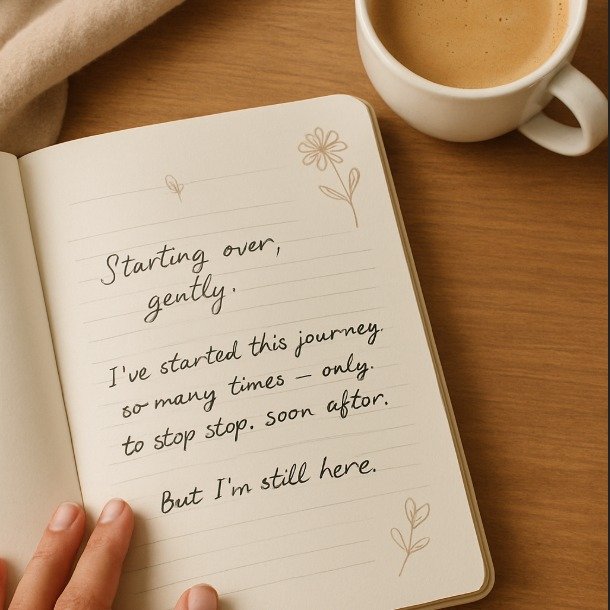 Starting over,
gently.
I've started this journey.
so many times — only.
to stop stop. soon aftor.
But I'm still here.